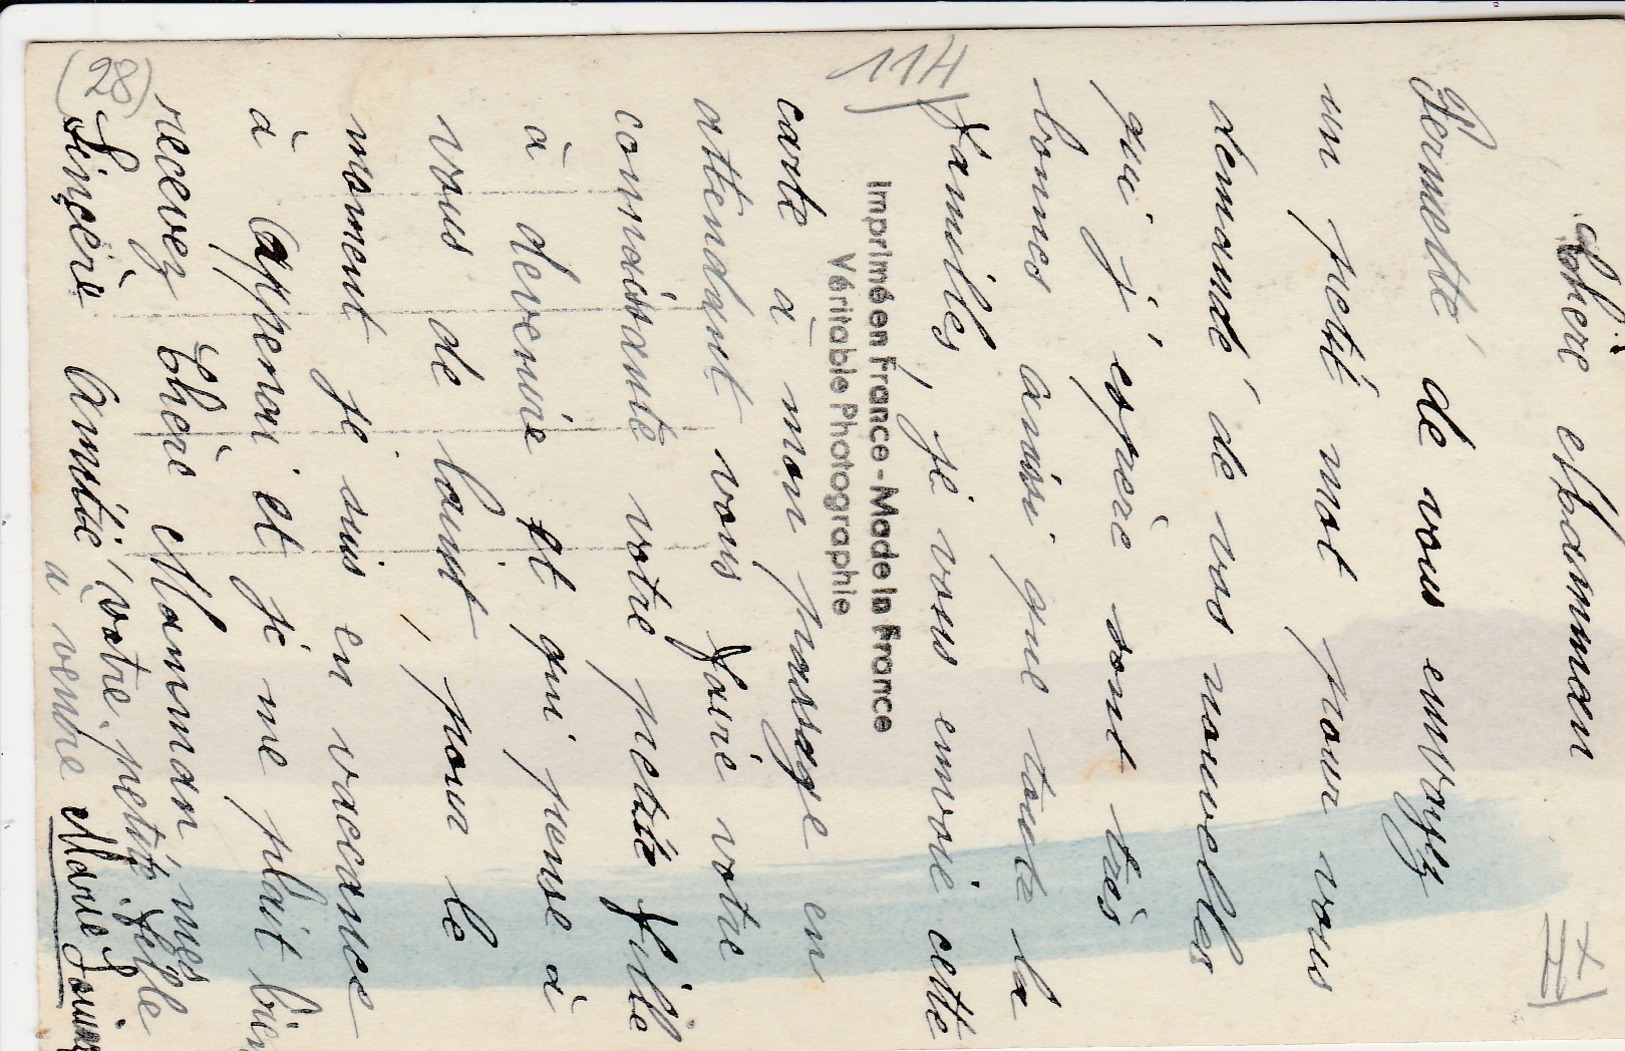 Chère Mamman
Permetté de vous envoyez
un petit mot pour vous
demandé de vos nouvelles
qui j'éspère sont très
bonnes aussi que toute la
familles, je vous envoie cette
carte a mon passage en
attendant vous faire votre
connaissante votre petite fille
à devenire et qui pense à
vous de loint, pour le
moment je suis en vaccance
à et je me plait bien
recevez Chère Mamman, mes
Sinçère Amitié, votre petite fille
a venire Marie
Imprimé en France - Made in France
Véritable Photographie
114
(28)